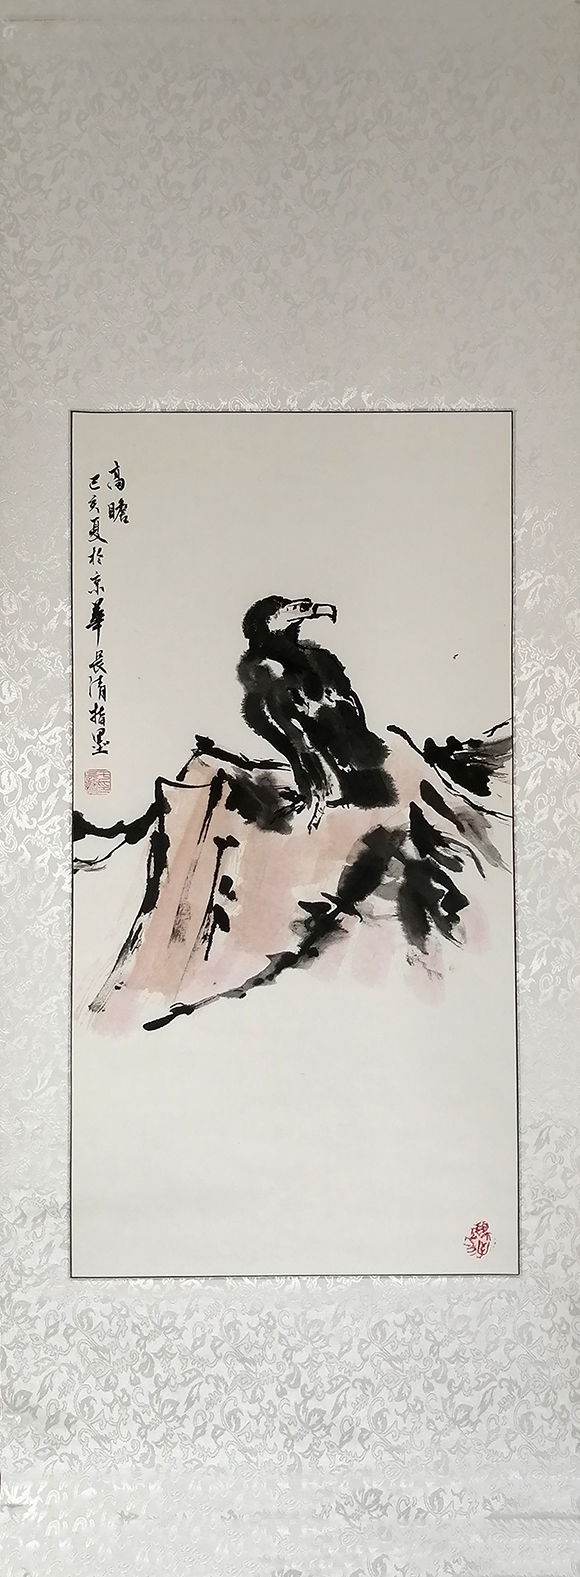 高瞻
己亥夏於京華長清指墨